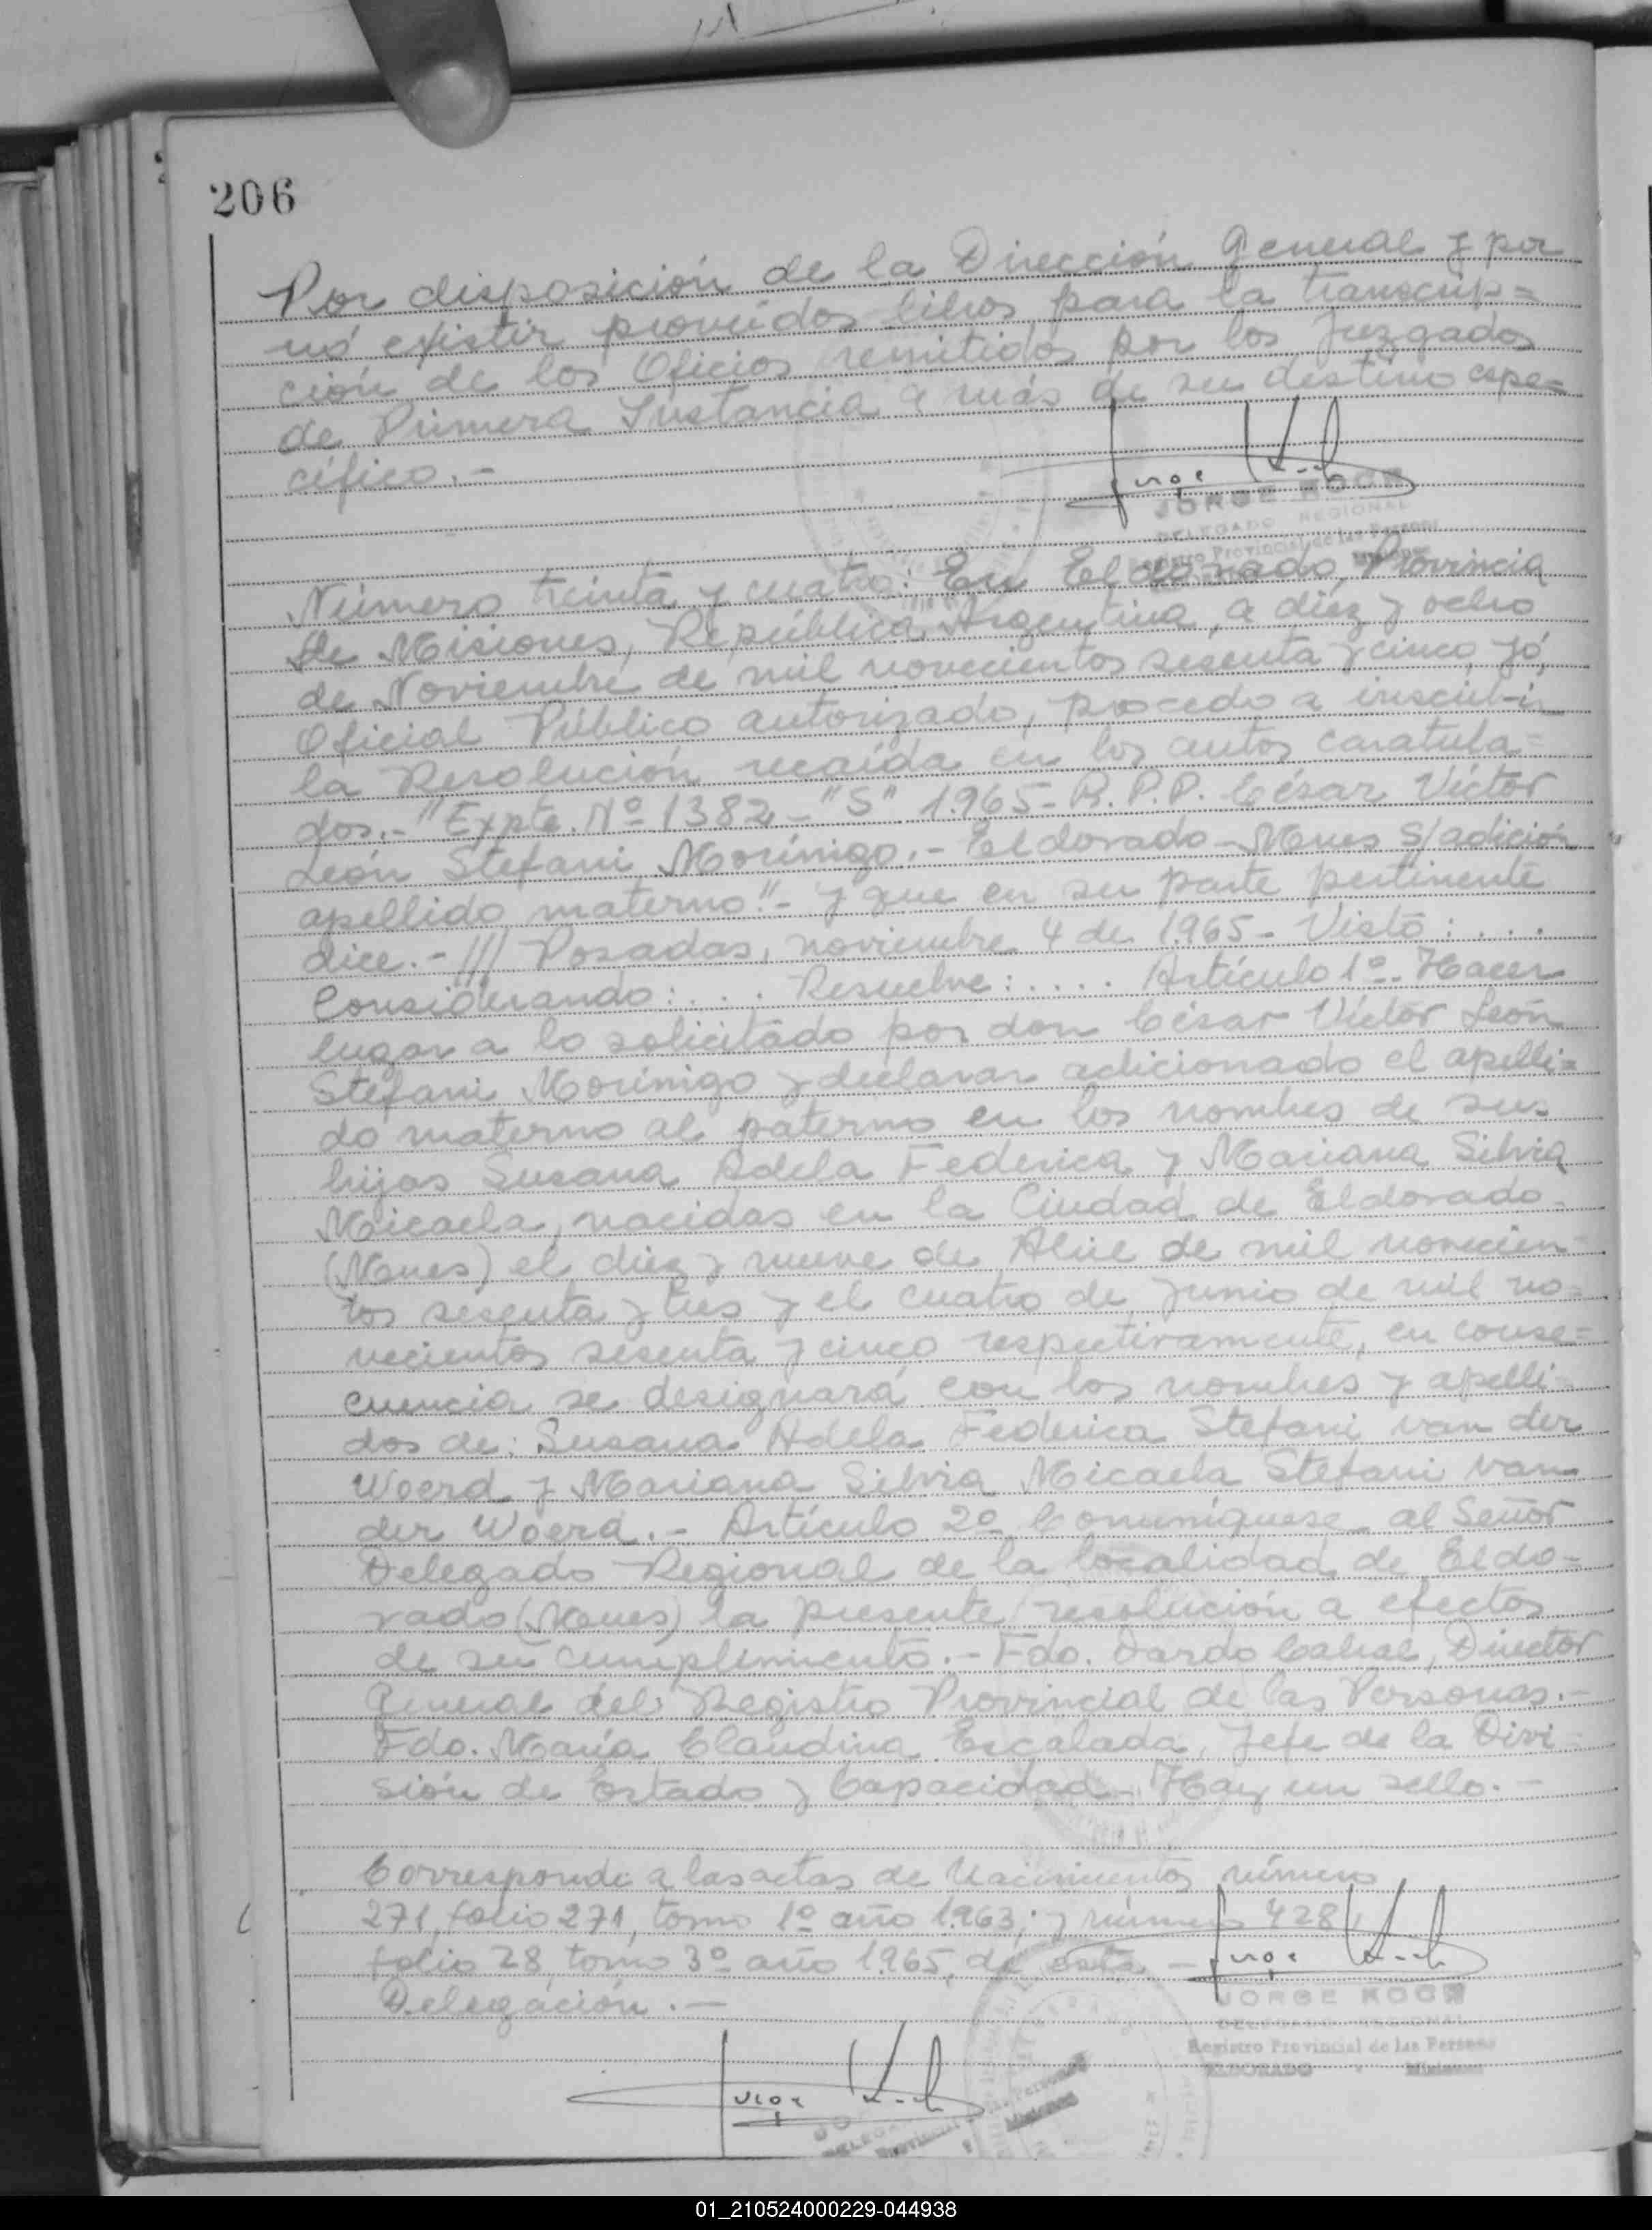 206
Por disposición de la Dirección General y por
nó existir proveídos libros para la transcrip=
ción de los Oficios remitidos por los Juzgados
de Primera Instancia a más de su destino espe=
cífico.-
Jorge Koch
JORGE KOCH
DELEGADO REGIONAL
Registro Provincial de las Personas
Número treinta y cuatro: En Eldorado, Provincia
de Misiones, República Argentina, a diéz y ocho
de Noviembre de mil novecientos sesenta y cinco, yó,
Oficial Público autorizado, procedo a inscribir
la Resolución recaída en los autos caratula=
dos.- "Expte. Nº 1382.- "S" 1.965- R.P.P. César Víctor
León Stefani Morínigo.- Eldorado - Mnes S/adición
apellido materno".- y que en su parte pertinente
dice.- /// Posadas, noviembre 4 de 1.965- Visto: ....
Considerando: ... Resuelve: .... Artículo 1º- Hacer
lugar a lo solicitado por don César Víctor León
Stefani Morínigo y declarar adicionado el apelli=
do materno al paterno en los nombres de sus
hijas Susana Adela Federica y Mariana Silvia
Micaela, nacidas en la Ciudad de Eldorado-
(Mnes) el diez y nueve de Abril de mil novecien=
tos sesenta y tres y el cuatro de Junio de mil no=
vecientos sesenta y cinco respectivamente, en conse=
cuencia se designará con los nombres y apelli=
dos de: Susana Adela Federica Stefani van der
Woerd y Mariana Silvia Micaela Stefani van
der Woerd.- Artículo 2º Comuníquese al Señor
Delegado Regional de la localidad de Eldo=
rado (Mnes) la presente resolución a efectos
de su cumplimiento.- Fdo. Dardo Cabral, Director
General del Registro Provincial de las Personas.-
Fdo. María Claudina Escalada, Jefe de la Divi=
sión de Estado y Capacidad- Hay un sello.-
Corresponde a las actas de Nacimientos número
271, folio 271, tomo 1º año 1.963; y número 428,
folio 28, tomo 3º año 1.965, de esta -
Delegación.-
Jorge Koch
JORGE KOCH
DELEGADO REGIONAL
Registro Provincial de las Personas
ELDORADO - Misiones
Jorge Koch
Misiones
01_210524000229-044938